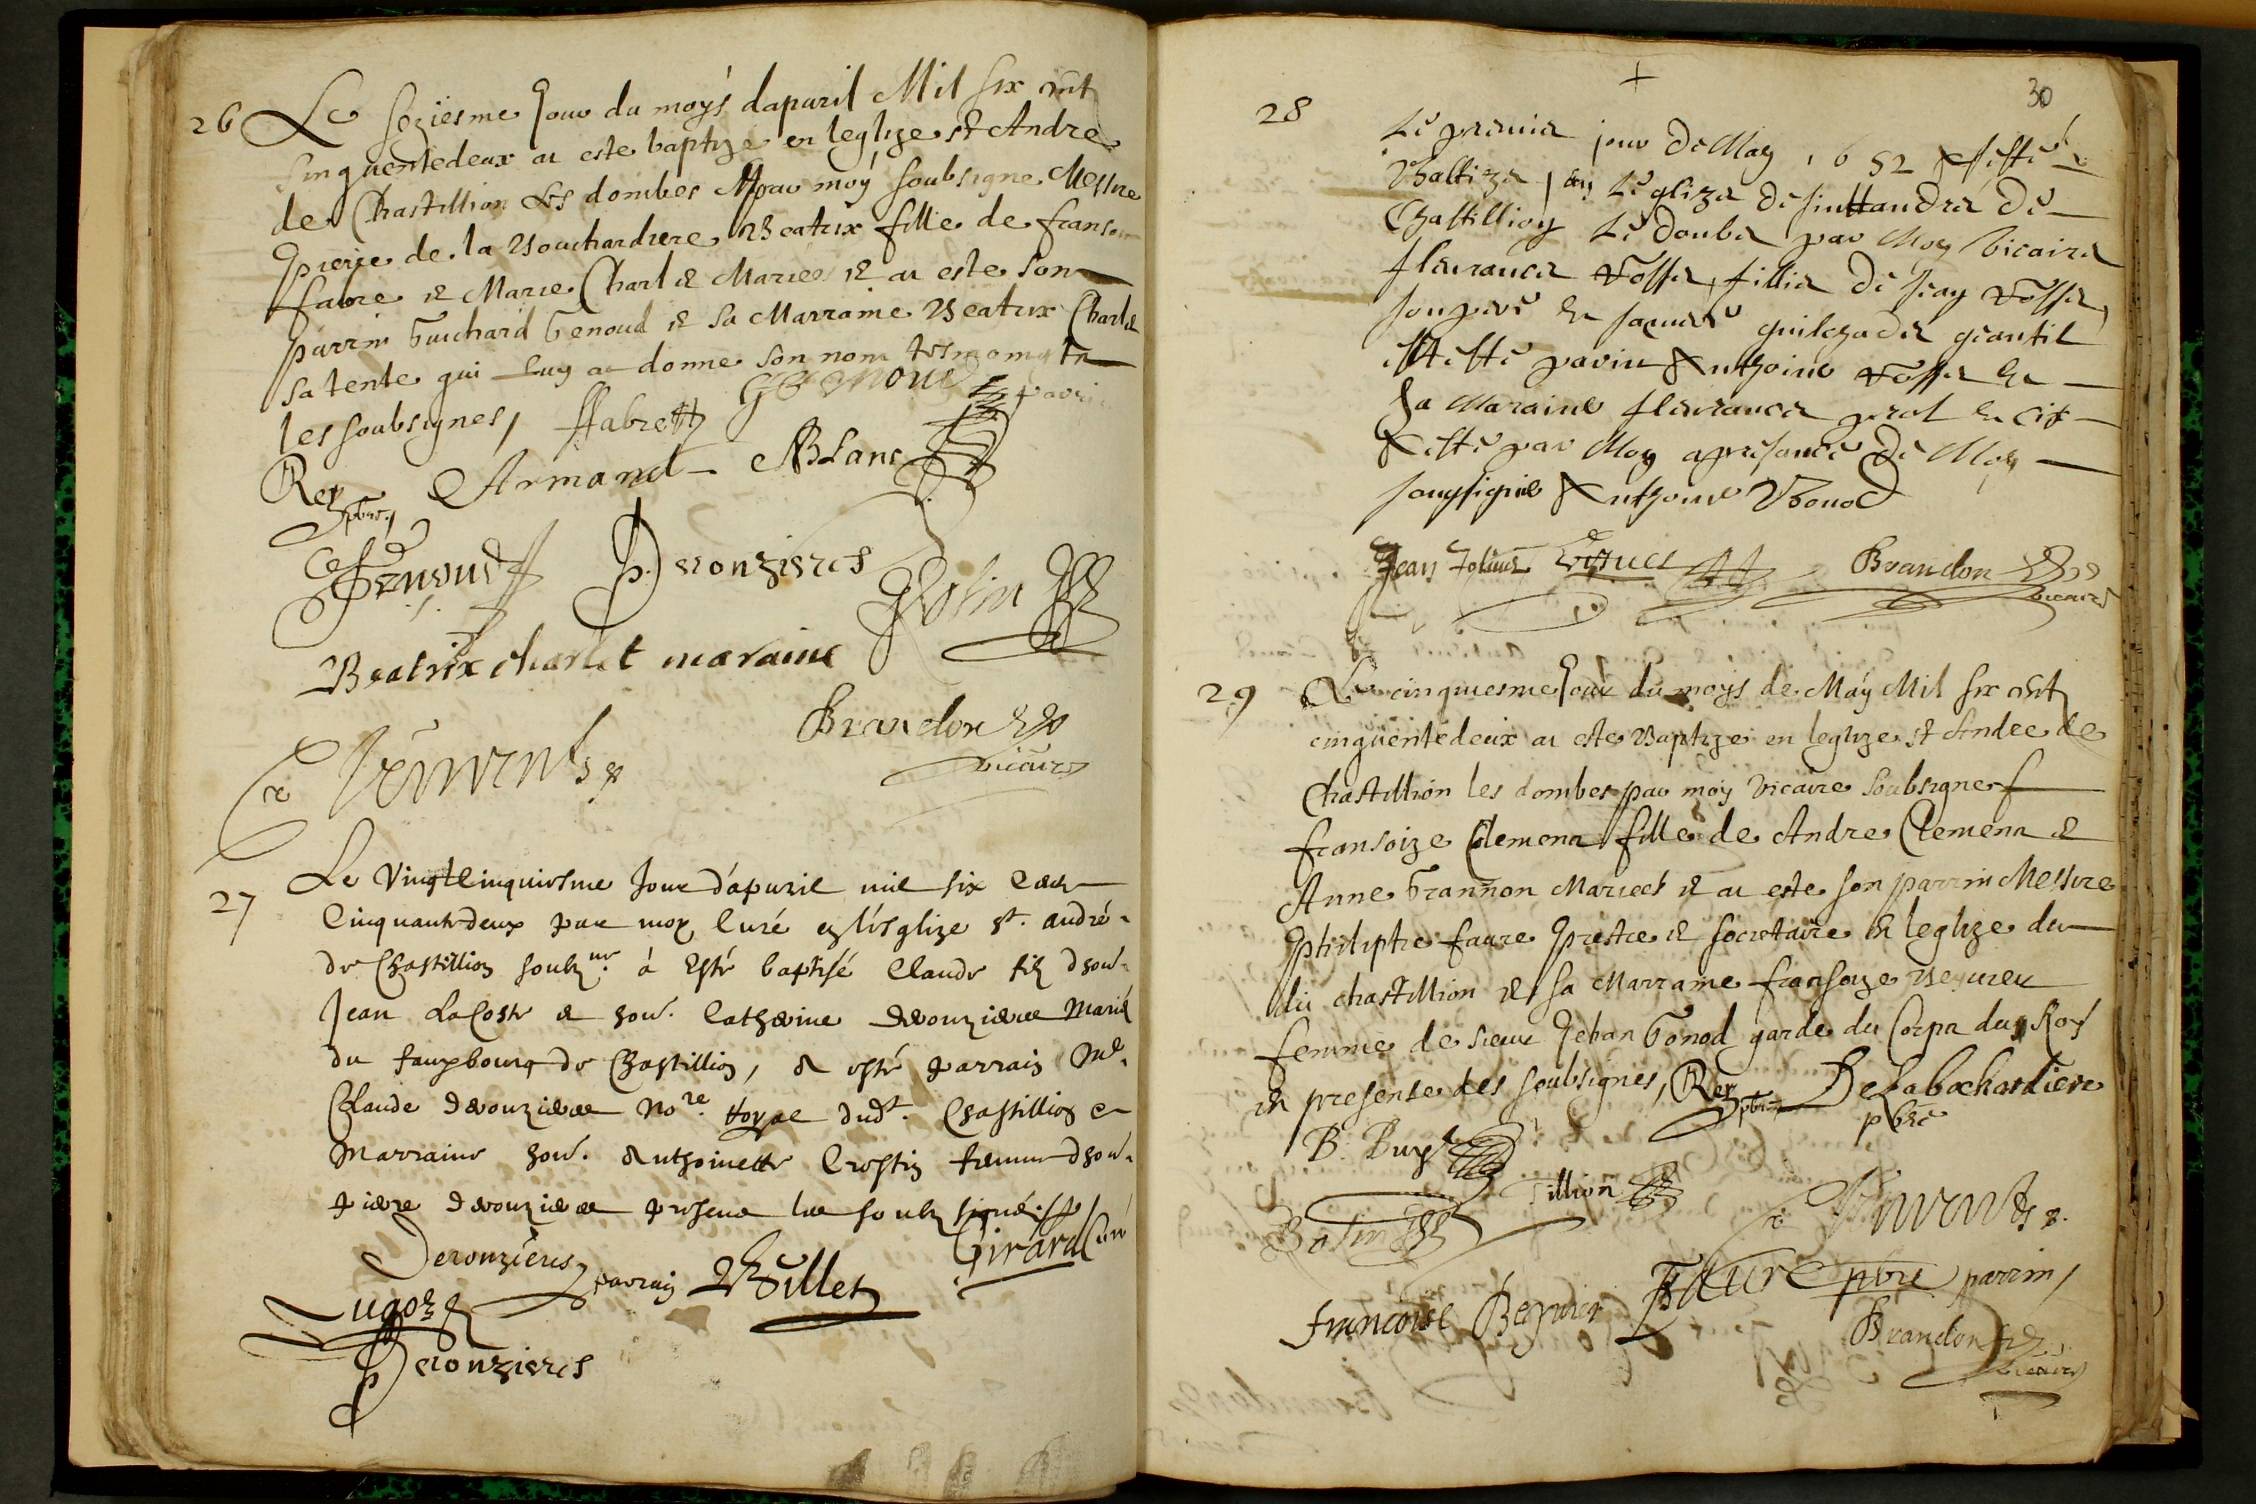 26 Le seziesme Jour du moys dapuril Mil six cent
sinquentedeux a este baptize en leglize st Andre
de Chastillion Les dombes par moy soubsigne Messire
pierre de la Bouchardiere Beatrix fille de franson
fabre et Marie Charlet Maries et a este son
parrin Guichard Genoud et sa Marraine Beatrix Charlet
sa tente qui Luy a donne son nom tesmoings
les soubsignes, ffabre GGenoud parrin
Rey pbre Armand ABLanc
Genoud P. Deronzieres GBolin
Beatrix charlet maraine
Brandon
vicaire
27 Le Vingtcinquiesme Jour d'apuril mil six cens
Cinquante deux par moy Curé en l'esglize st. andré
de Chastillion soubz.né à Esté baptisé Claude filz d'hon.
Jean LaCoste et hon. Catherine Deronzieres Mariés
du fauxbourg de Chastillion, & esté parrain Me.
Claude Deronzieres No.re Royal dudt. Chastillion et
Marraine hon. Anthoinette Crostin femme d'hon.
pierre Deronzieres presens les soubz signés
Deronzieres parrain Buillet Girard Curé
Lugoz
P Deronzieres
+
30
28 Le premier jour de May 1652 A esté
Battize en Leglize de sinttandré de
Chastillion Le donbe par Moy vicaire
fleurance Tosse fillie de Jean Tosse
son pere et Jaquemé gentil
A esté parin Anthoine Tosse et
sa Maraine fleurance
A esté par Moy apresance de Moy
sousigné Anthoine Bonod
Jean Brandon
vicaire
29 Le cinquiesme Jour du moys de May Mil six cent
cinquentedeux a este Baptize en leglize st Andre de
Chastillion les dombes par moy vicaire soubsigne
fransoize Clemena fille de Andre Clemena et
Anne Grannon Mariés et a este son parrin Messire
phidiphe faure prestre et socretaire en leglize du
du chastillion et sa Marraine fransoize
femme de sieur Jehan Gonod garde du Corps du Roy
en presense des soubsignes, Rey pbre Delabochardiere
pbre
B. Buy
illion
Bolin
francoise Beynier Faure pbre parrin
Brandon
vicaire